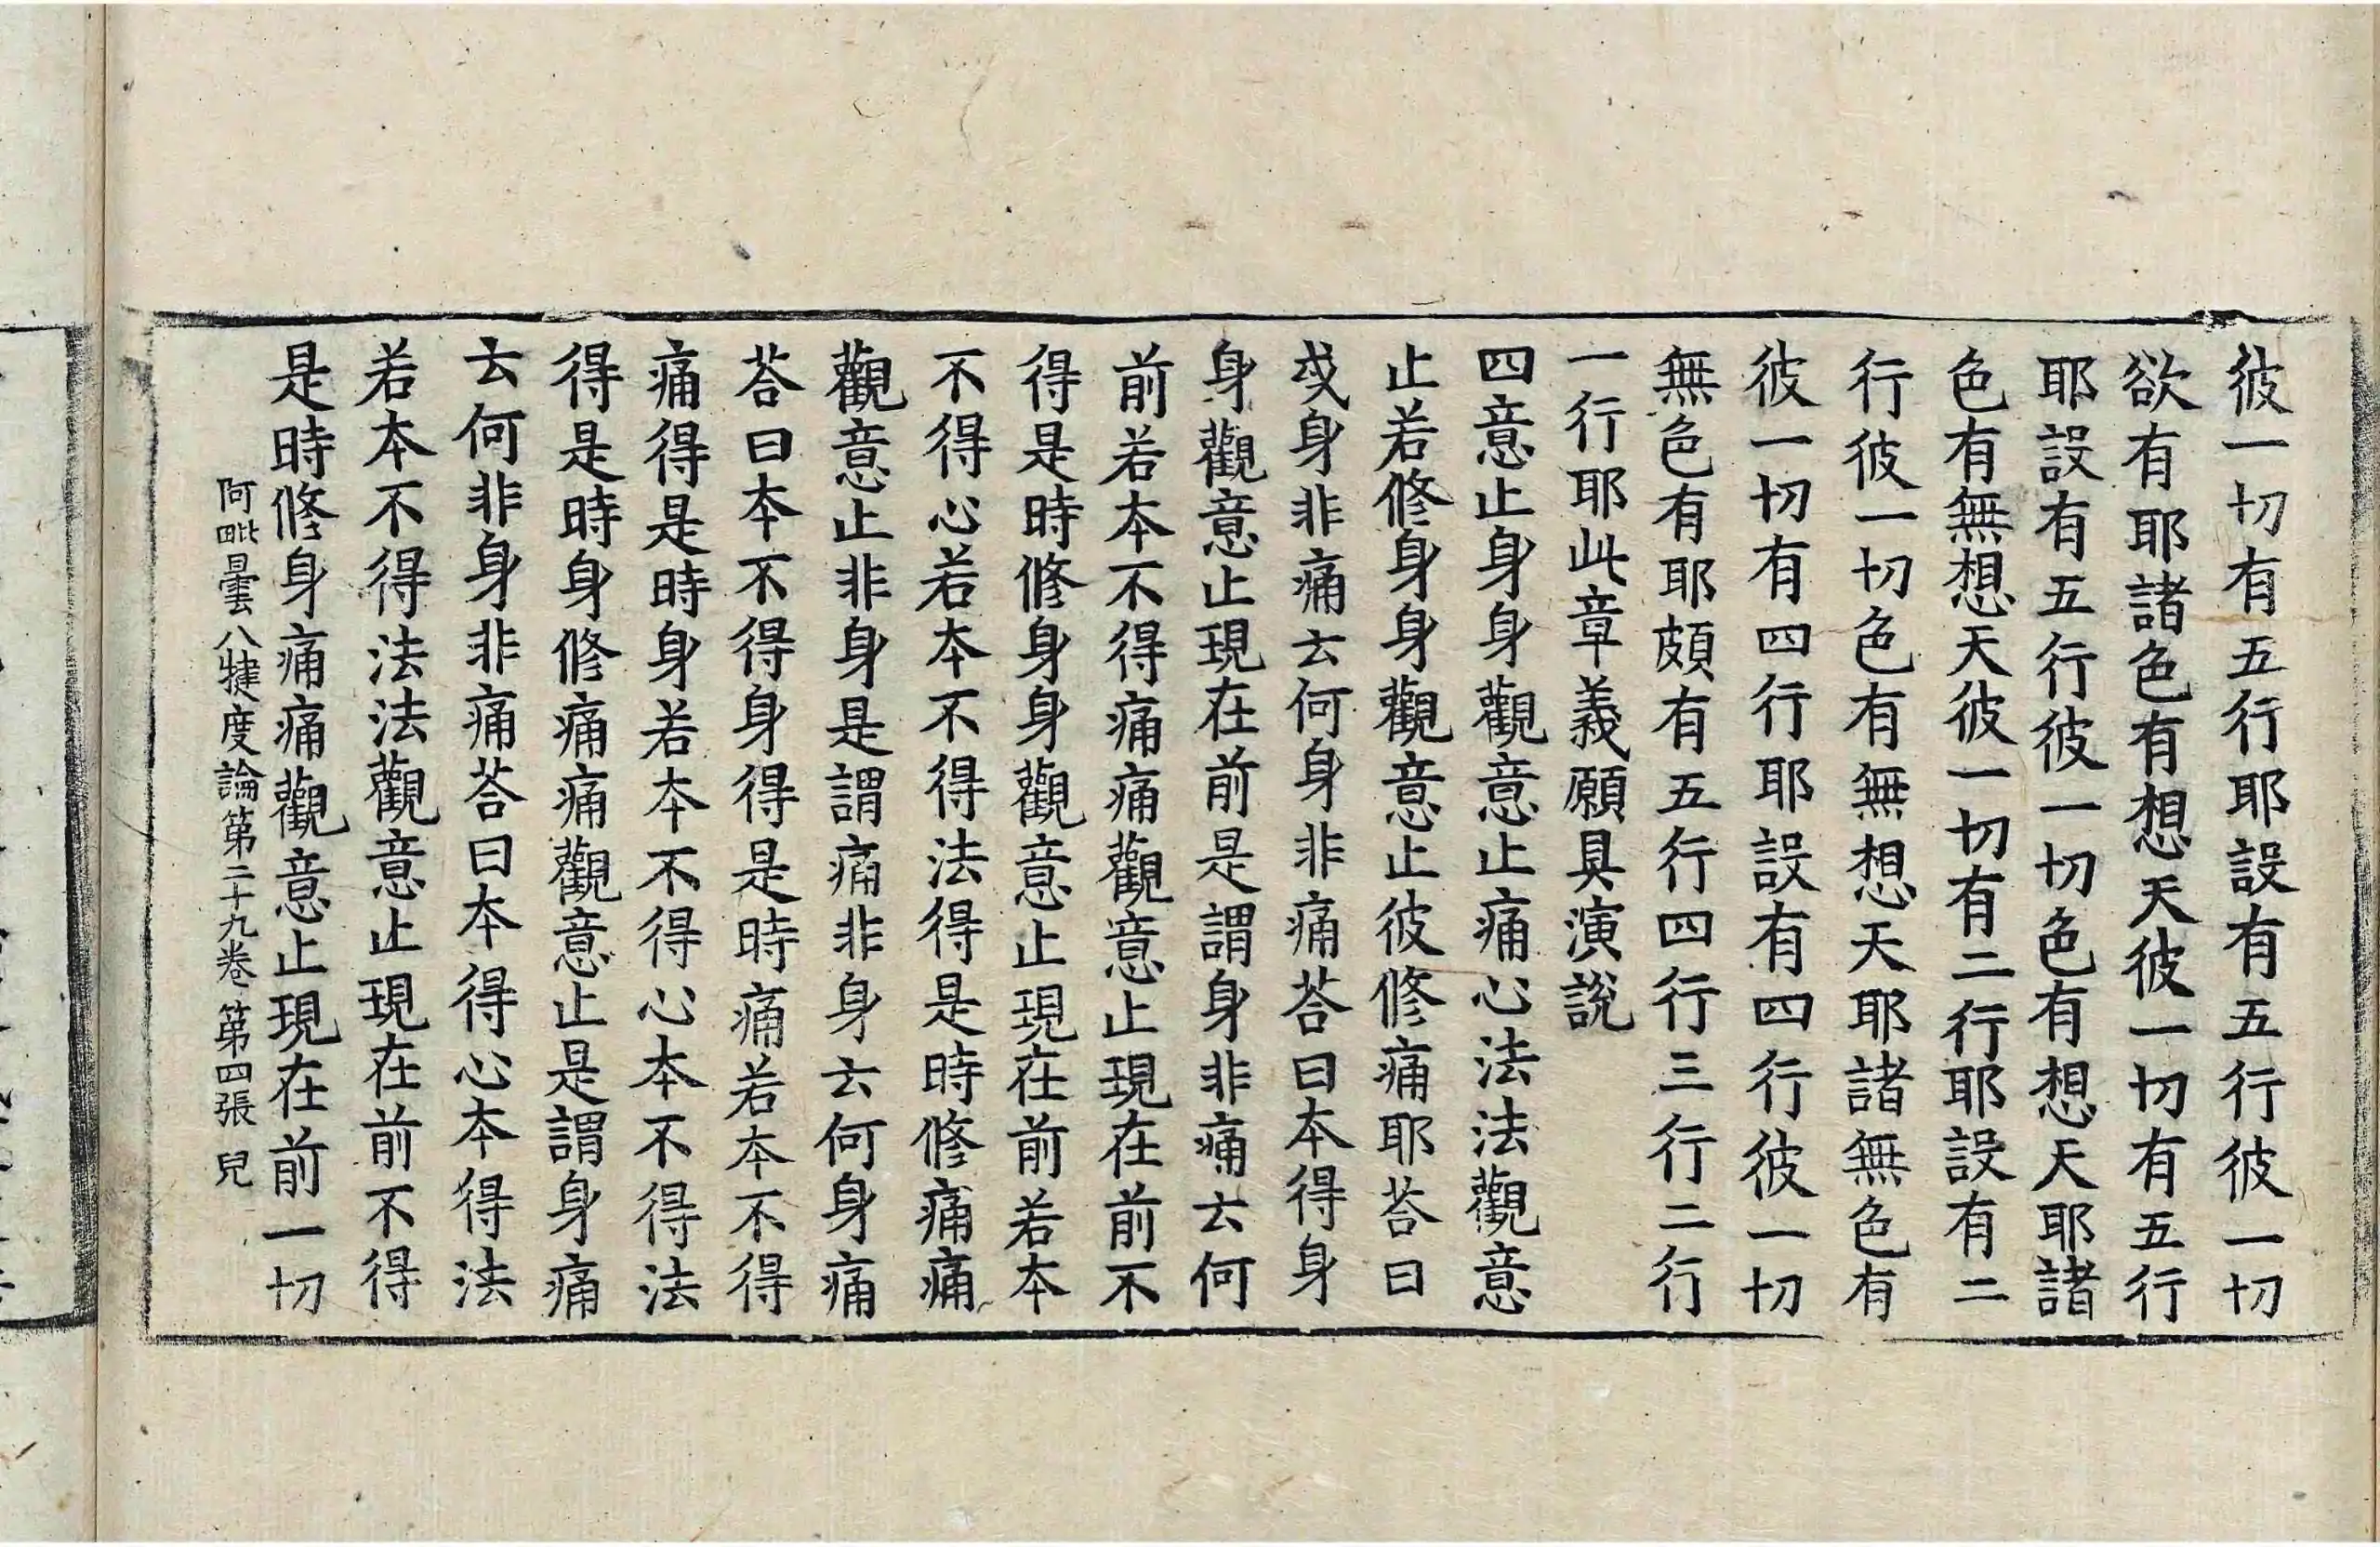 彼一切有五行耶設有五行彼一切
欲有耶諸色有想天彼一切有五行
耶設有五行彼一切色有想天耶諸
色有無想天彼一切有二行耶設有二
行彼一切色有無想天耶諸無色有
彼一切有四行耶設有四行彼一切
無色有耶頗有五行四行三行二行
一行耶此章義願具演說
四意止身身觀意止痛心法法觀意
止若修身身觀意止彼修痛耶荅曰
或身非痛云何身非痛荅曰本得身
身觀意止現在前是謂身非痛云何
前若本不得痛痛觀意止現在前不
得是時修身身觀意止現在前若本
不得心若本不得法得是時修痛痛
觀意止非身是謂痛非身云何身痛
荅曰本不得身得是時痛若本不得
痛得是時身若本不得心本不得法
得是時身修痛痛觀意止是謂身痛
云何非身非痛荅曰本得心本得法
若本不得法法觀意止現在前不得
是時修身痛痛觀意止現在前一切
阿毗曇八犍度論第二十九卷 第四張 兒